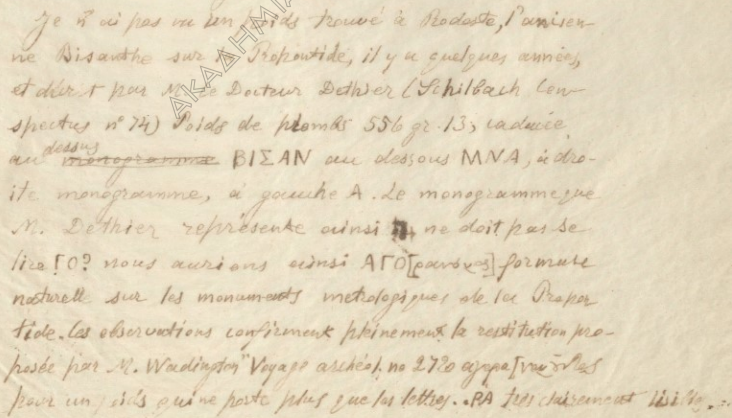 Je n'ai pas vu un poids trouvé à Rodosto, l'ancien-
ne Bisanthe sur la Propontide, il y a quelques années,
et décrit par M. le Docteur Dethier (Schilbach Con-
spectus n° 74) Poids de plombs 556 gr. 13, caducée
au dessus monogramme ΒΙΣΑΝ au dessous ΜΝΑ, à dro-
ite monogramme, à gauche A. Le monogramme que
M. Dethier représente ainsi ne doit pas se
lire ΓΟ? nous aurions ainsi ΑΓΟ[ρανόμος] formule
naturell sur les monuments métrologiques de la Propon
tide. Ces observations confirment pleinement la restitution pro-
posée par M. Wadington "Voyage archéol. no 2720
pour un poids qui ne porte plus que les lettres. .ΡΑ très clairement lisible.
ΑΚΑΔΗΜΙΑ